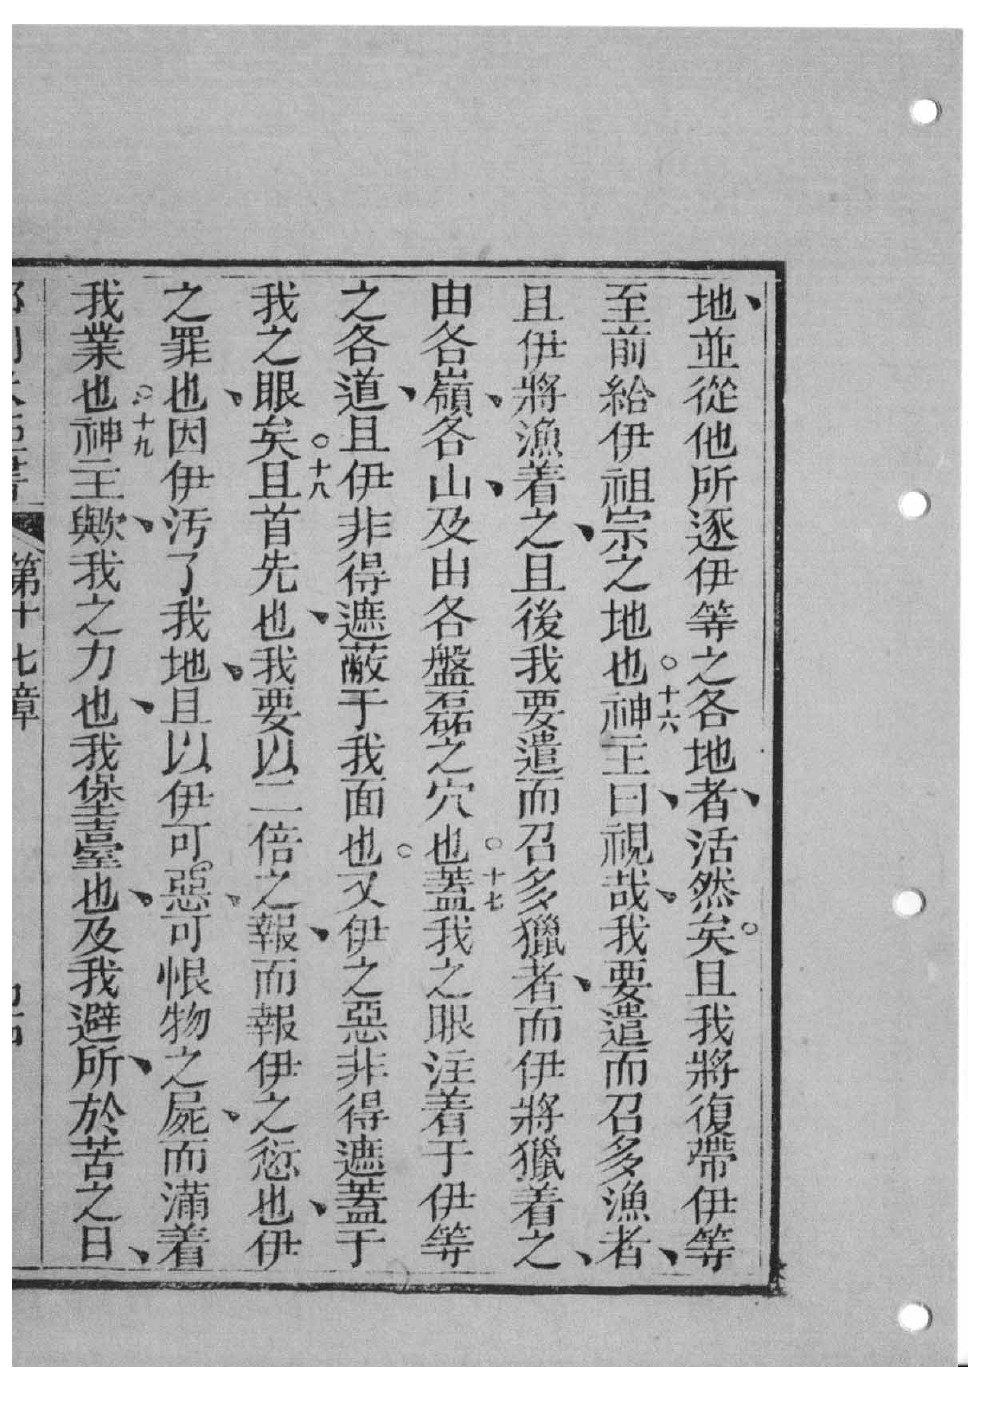 地、並從他所逐伊等之各地者、活然矣。且我將復帶伊等
至前給伊祖宗之地也。十六神主曰、視哉、我要遣而召多漁者、
且伊將漁着之、且後我要遣而召多獵者、而伊將獵着之、
由各嶺、各山、及由各盤磊之穴也。十七蓋我之眼注着于伊等
之各道、且伊非得遮蔽于我面也。又伊之惡非得遮蓋于
我之眼矣。十八且首先也、我要以二倍之報、而報伊之愆也、伊
之罪也、因伊汚了我地、且以伊可惡、可恨物之屍、而滿着
我業也。十九神主歟、我之力也、我堡臺也、及我避所、於苦之日、
第十七章